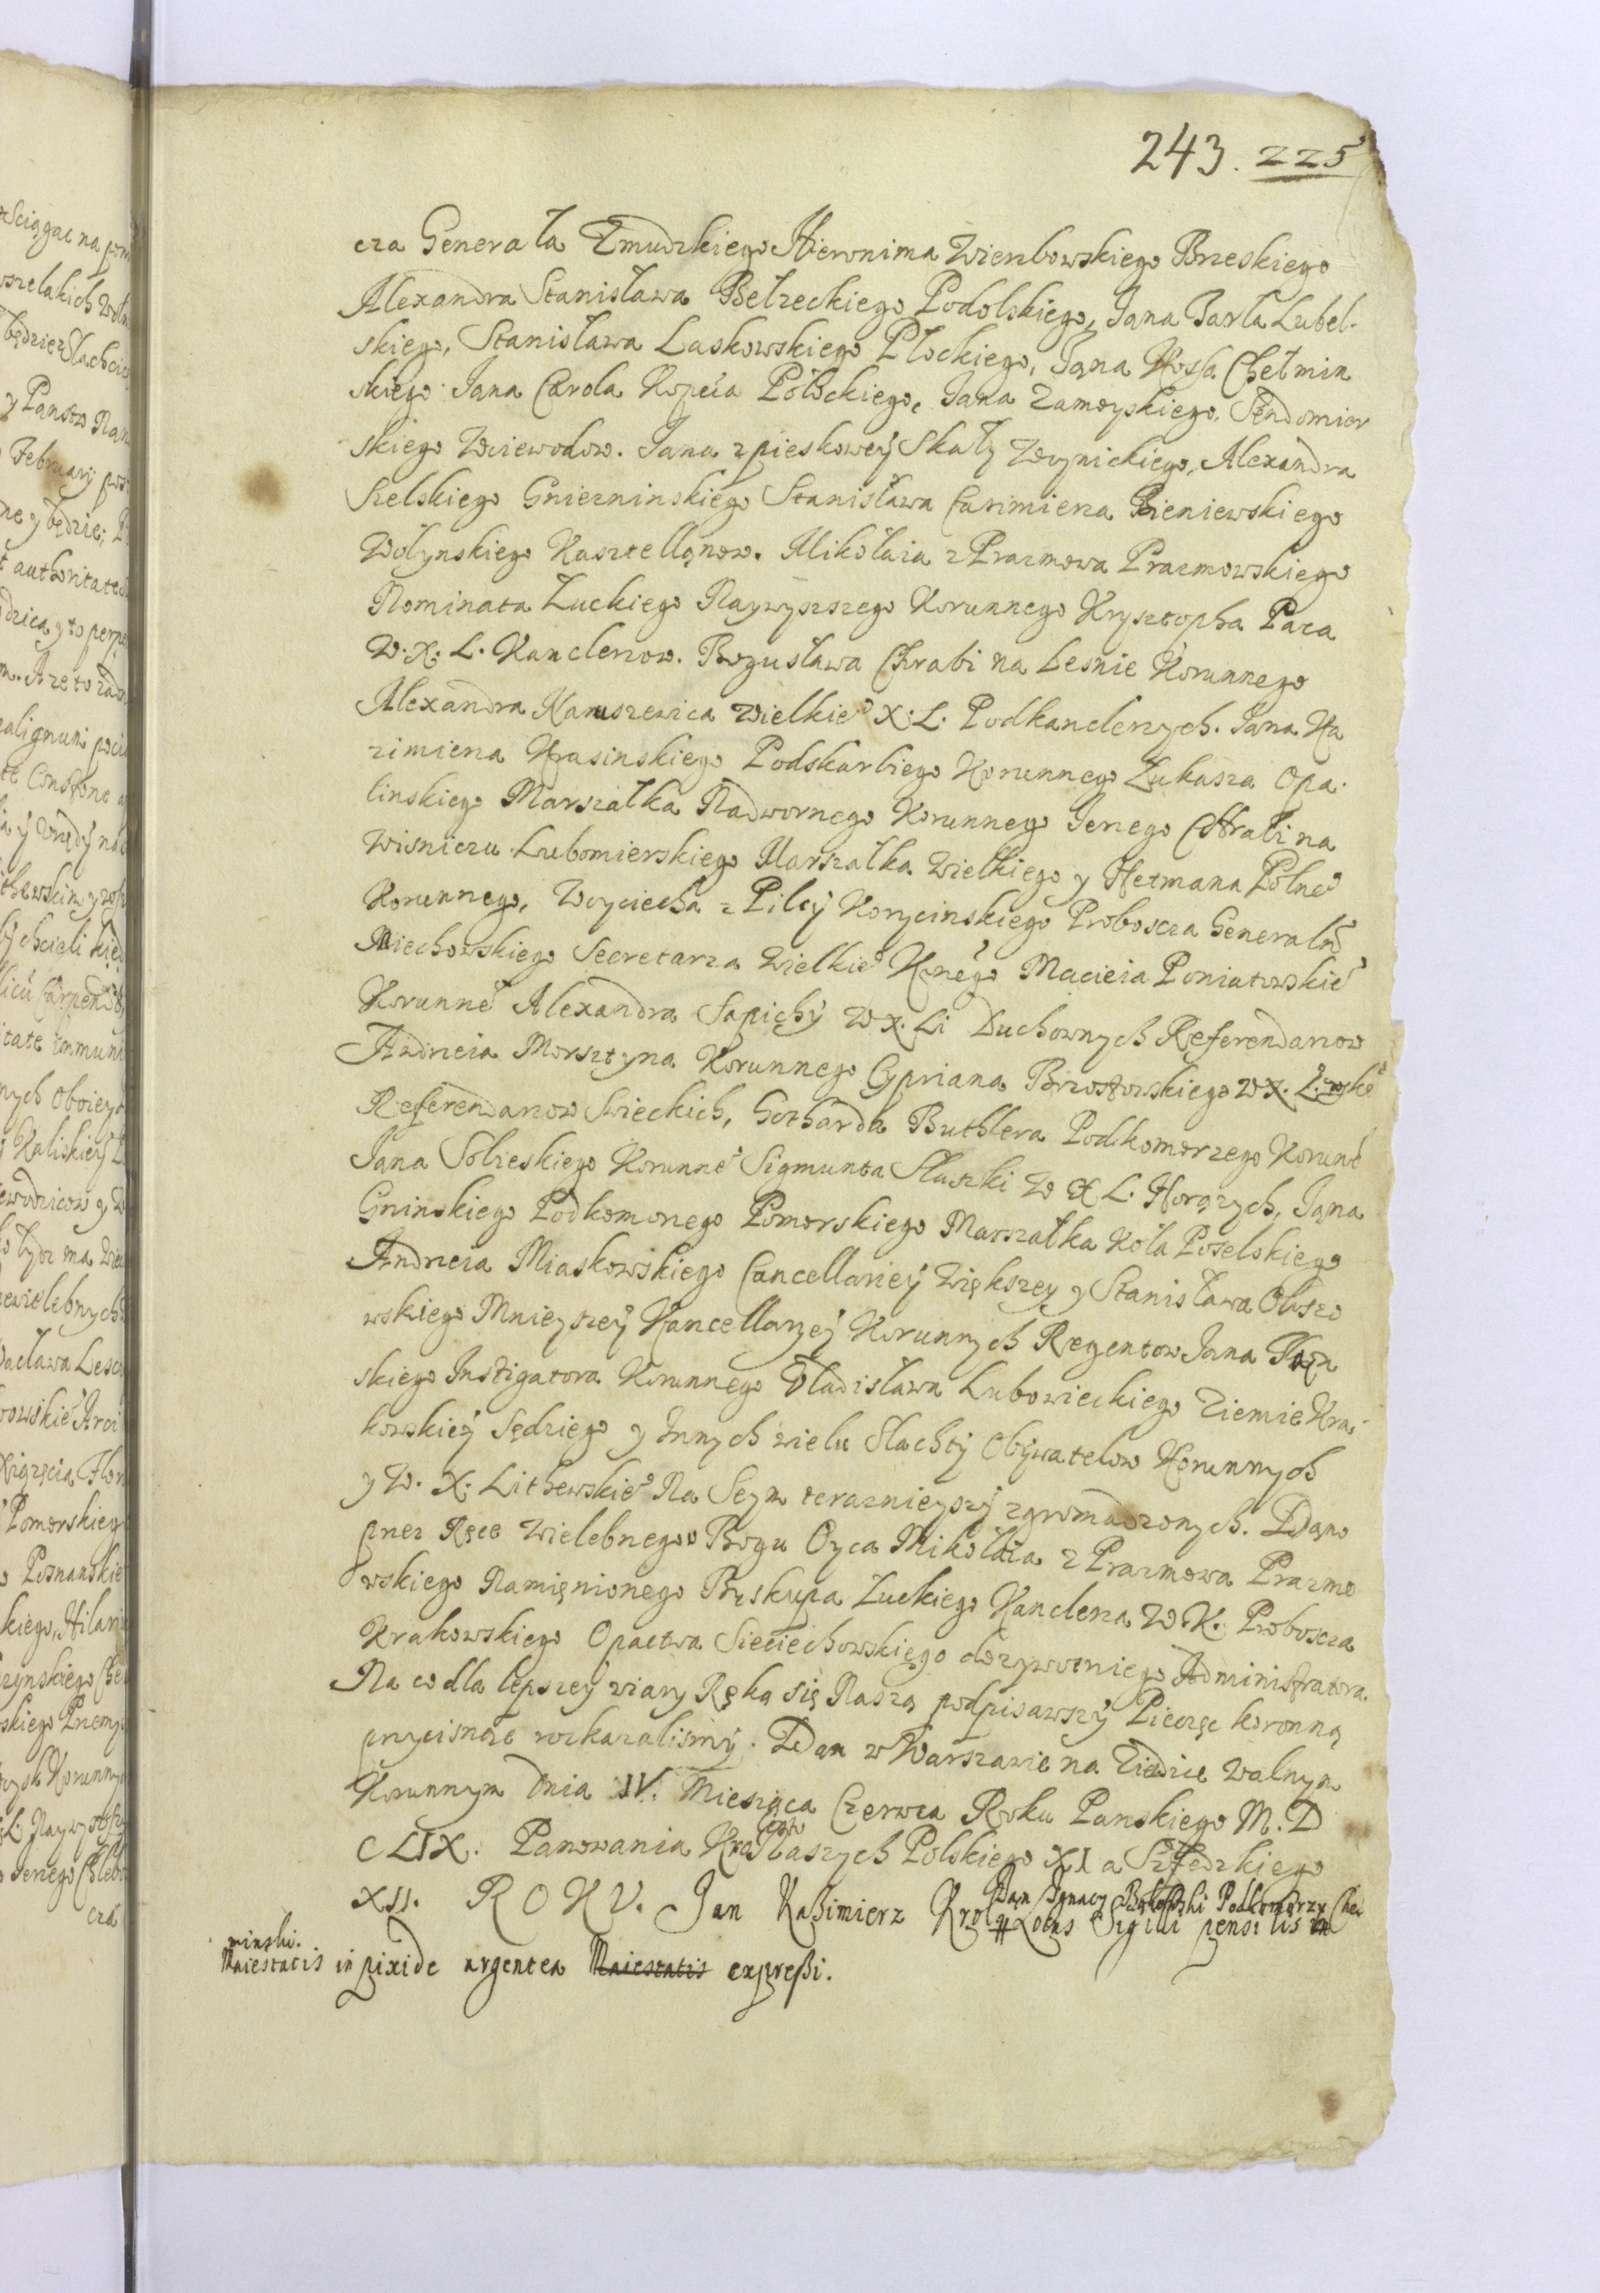 243. 225
cza Generała Zmudzkiego Hieronima Wierzbowskiego Brzeskiego
Alexandra Stanisława Bełzeckiego Podolskiego, Jana Tarła Lubel-
skiego, Stanisława Laskowskiego Płockiego, Jana Kossa Chełmin
skiego Jana Carola Kopcia Połockiego, Jana Zamoyskiego, Sendomier
skiego Woiewodow. Jana z pieskowey Skały Wezynickiego, Alexandra
Sielskiego Gniezninskiego Stanisława Cazimierza Bieniewskiego
Wołynskiego Kasztellanow. Mikołaia z Prazmowa Prazmowskiego
Nominata Łuckiego Naywyszszego Korunnego Krysztopha Paca
W. X. L. Kanclerzow. Bogusława Chrabi na Lesnie Korunnego
Alexandra Naruszewica Wielkie° X. L. Podkanclerzych. Jana Ka
zimierza Krasinskiego Podskarbiego Korunnego Łukasza Opa-
linskiego Marszałka Nadwornego Korunnego Jerzego CHrabi na
Wisniczu Lubomierskiego Marszałka Wielkiego y Hetmana Polne°
Korunnego, Woyciecha z Pilcy Korycinskiego Proboscza Generaln°
Miechowskiego Secretarza Wielkie° Krnego Macieia Poniatowskie°
Korunne° Alexandra Sapiehy W X. Li Duchownych Referendarzow
Andrzeia Morsztyna Korunnego Cypriana Brzostowskiego W X. L:
Referendarzow Swieckich, Gotharda Buthlera Podkomorzego Korune°
Jana Sobieskiego Korunne° Sigmunta Słuszki W X L. Horązych, Jana
Gninskiego Podkomorzego Pomorskiego Marszałka Koła Poselskiego
Andrzeia Miaskowskiego Cancellariey Większey y Stanisława Olszo
wskiego Mnieyszey Kancellaryey Korunnych Regentow Jana
skiego Instigatora Korunnego Vladisława Lubowieckiego Ziemie Kra-
kowskiey Sędziego y Innych wielu Slachty Obywatelow Korunnych
y W. X. Lithewskie° Na Seym terazniejszy zgromadzonych. Dano
przez Ręce Wielebnego w Bogu Oyca Mikołaia z Prazmowa Prazmo
wskiego Namięnionego Biskupa Łuckiego Kanclerza W. K. Proboscza
Krakowskiego Opactwa Sieciechowskiego dozywotniego Administratora.
Na co dla lepszey wiary Ręką się Naszą podpisawszy Pieczęc koronną
przycisnąc rozkazalismy. Dan w Warszawie na Ziezdzie Walnym
Korunnym Dnia IV. Miesiąca Czerwca Roku Panskiego M. D
C LIX. Panowania Naszych Polskiego XI a Szfedzkiego
XII. ROKV. Jan Kaźimierz Krol Jan Ignacy Bąkofzki Podkomorzy Cheł
minski. # Locus Sigilli pensilis
Maiestatis in pixide argentea Maiestatis expreßi.